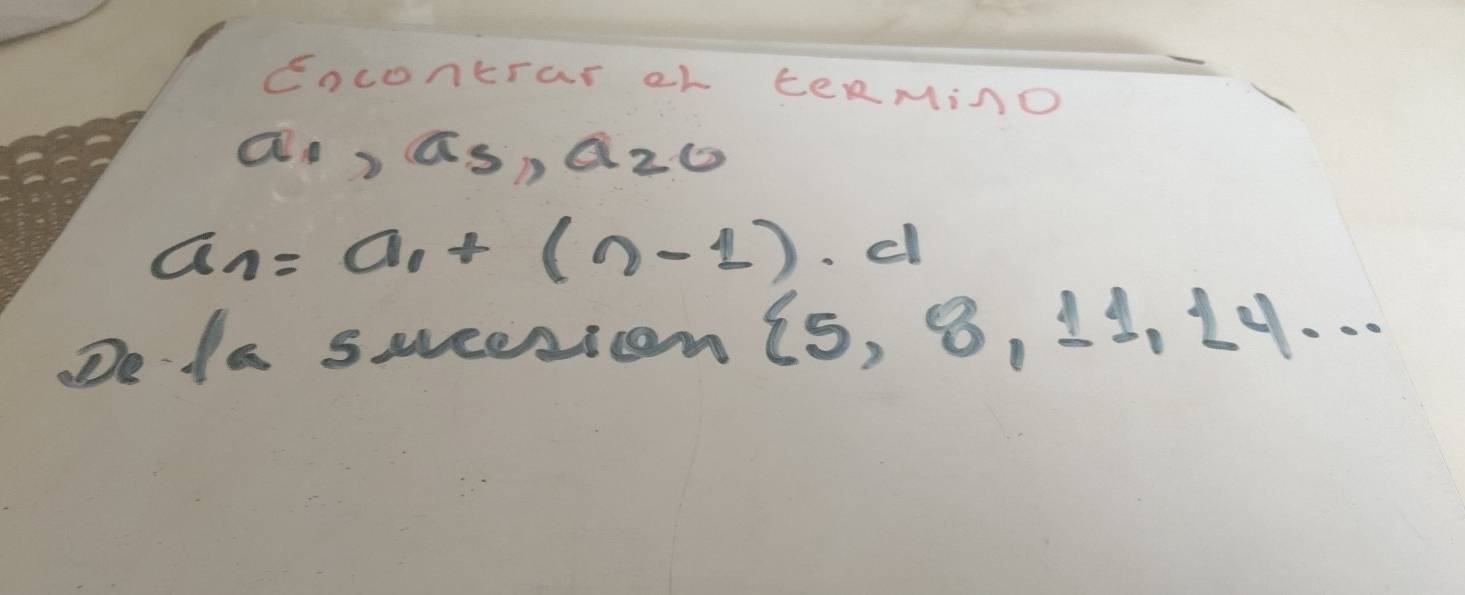 Encontrar el terMino
a₁, a₅,, a₂₀
aₙ = a₁ + (n-1). d
De la sucesion {5, 8, 11, 14...